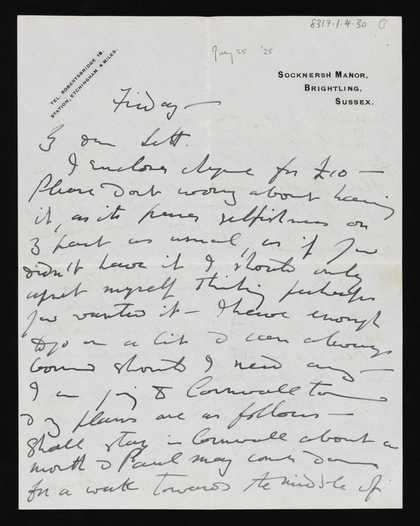 8317.1.4.30
Aug 25 '25
TEL. ROBERTSBRIDGE 19.
STATION, ETCHINGHAM 4 MILES.
SOCKNERSH MANOR,
BRIGHTLING,
SUSSEX.
Friday —
My dear
I enclose cheque for £10 —
Please dont worry about having
it, as its pure selfishness on
my part as usual, as if you
didn't have it I should only
upset myself thinking perhaps
you wanted it — I have enough
to go on a bit & can always
should I need any —
I am going to Cornwall
& my plans are as follows —
Shall stay in Cornwall about a
month & Paul may come down
for a week towards the middle of